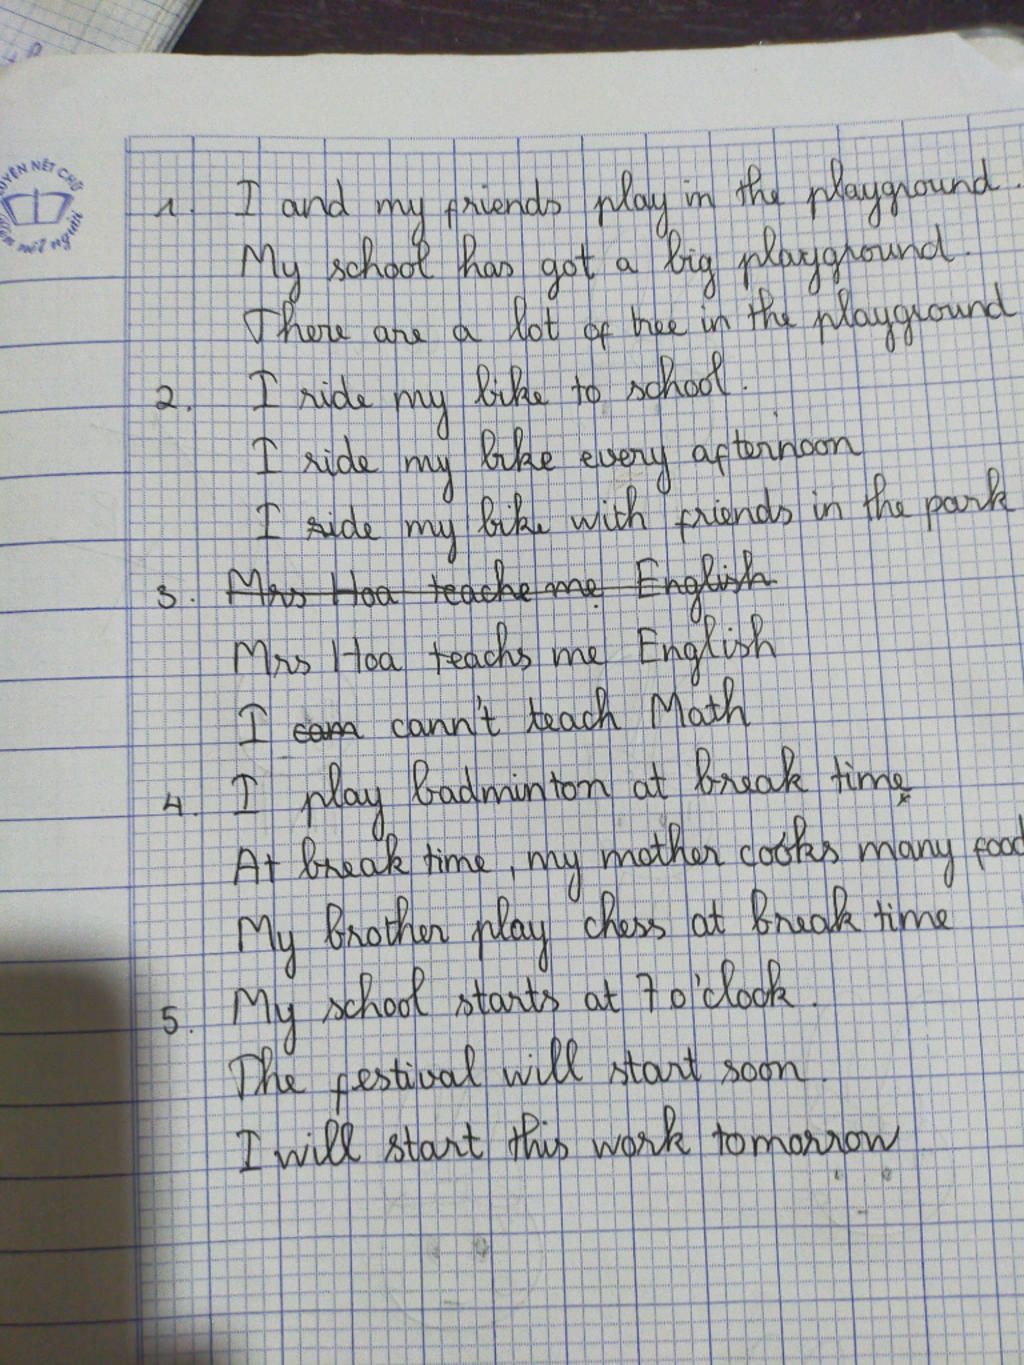 UYỆN NÉT CHỮ
nết người
1. I and my friends play in the playground.
My school has got a big playground.
There are a lot of tree in the playground
2. I ride my bike to school.
I ride my bike every afternoon
I ride my bike with friends in the park
3. Mrs Hoa teache me English
Mrs Hoa teachs me English
I cam cann't teach Math
4. I play badminton at break time
At break time, my mother cooks many food
My brother play chess at break time
5. My school starts at 7 o'clock.
The festival will start soon.
I will start this work tomorrow